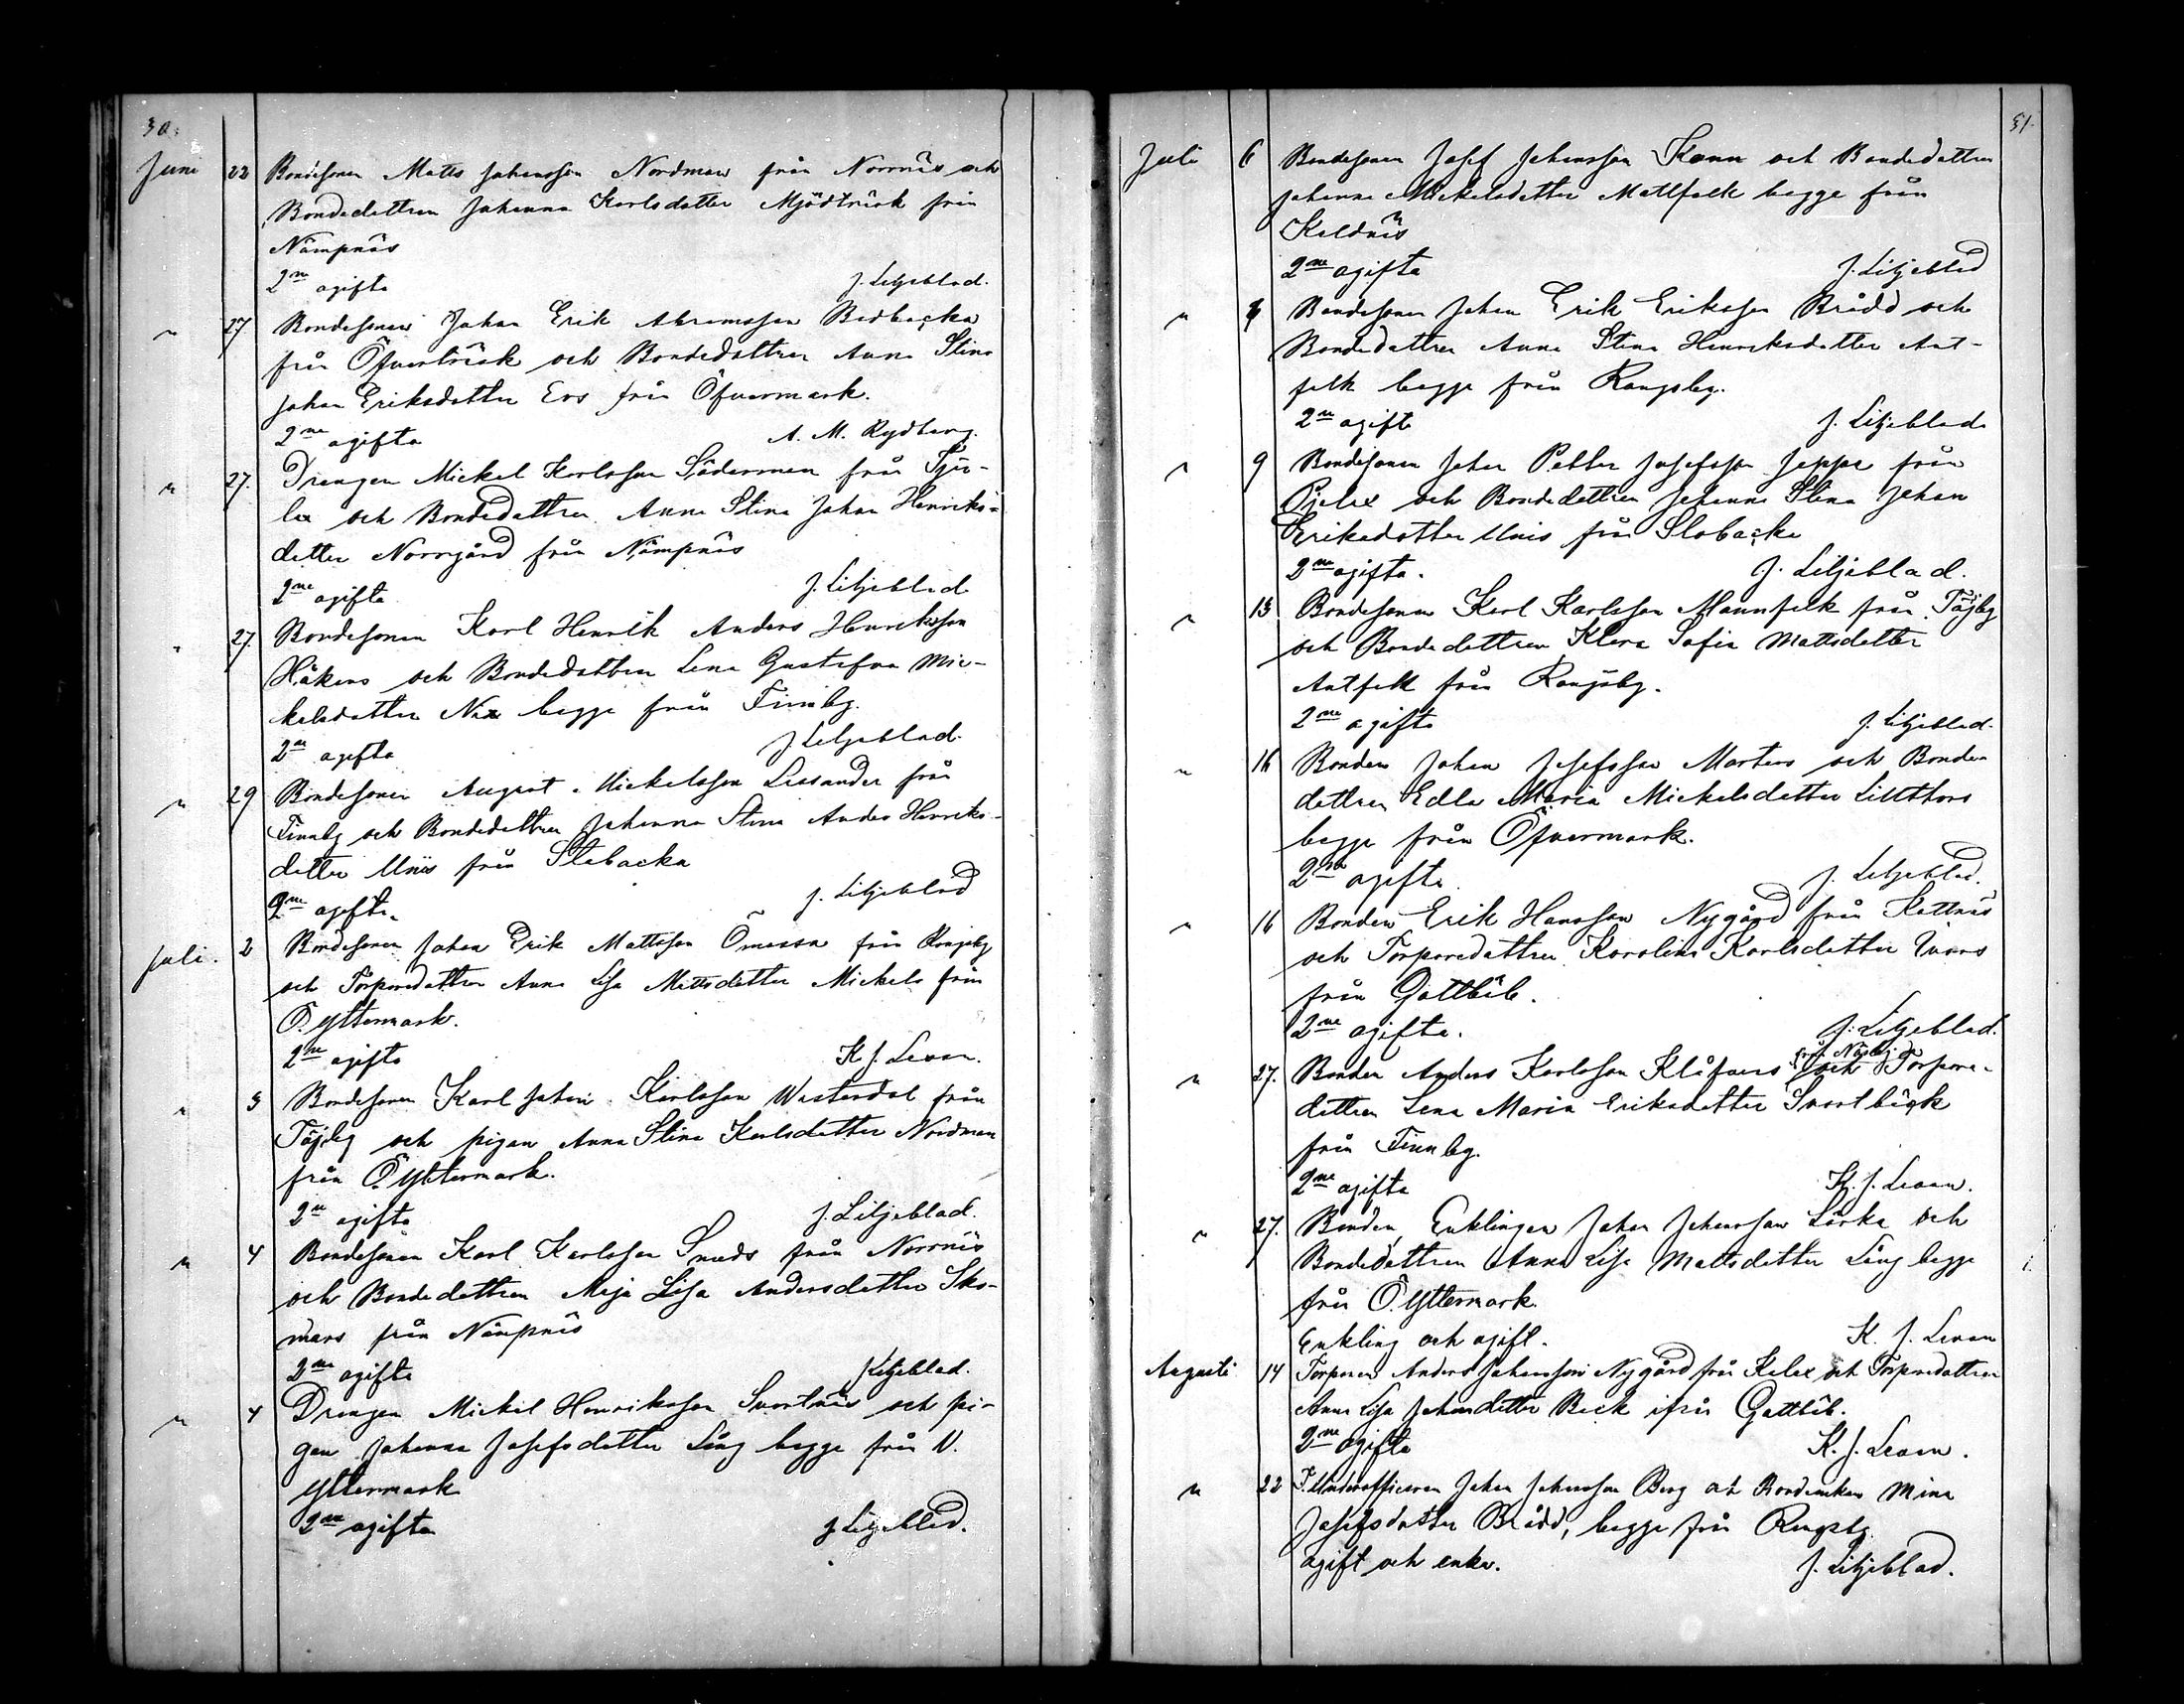 30.
Juni 22 Bondesonen Matts Johansson Nordman från Norrnäs och
Bondedottren Johanna Karlsdotter Mjödträsk från
Nämpnäs
2ne ogifta J. Liljeblad.
" 27 Bondesonen Johan Erik Abramsson Bedbacka
från Öfverträsk och Bondedottren Anna Stina
Johan Eriksdotter Ers från Öfvermark.
2ne ogifta A. M. Rydberg.
" 27. Drengen Mickel Karlsson Söderman från Tjär-
lax och Bondedottren Anna Stina Johan Henriks-
dotter Norrgård från Nämpnäs
2ne ogifta J. Liljeblad
" 27. Bondesonen Karl Henrik Anders Henriksson
Håkans och Bondedottren Lena Gustafva Mic-
kelsdotter Nix begge från Finnby.
2ne ogifta J. Liljeblad.
" 29 Bondesonen August Mickelsson Lissander från
Finnby och Bondedottren Johanna Stina Anders Henriks-
dotter Uniis från Slobacka
2ne ogifta. J. Liljeblad
Juli. 2 Bondesonen Johan Erik Mattsson Ömossa från Rangsby
och Torparedottren Anna Lisa Mattsdotter Mickels från
Ö. Yttermark.
2ne ogifta K. J. Levon.
" 3 Bondesonen Karl Johan Karlsson Westerdal från
Töjby och pigan Anna Stina Karlsdotter Nordman
från Ö. Yttermark.
2ne ogifta J. Liljeblad.
" 4 Bondesonen Karl Karlsson Smeds från Norrnäs
och Bondedottren Maja Lisa Andersdotter Sko-
mars från Nämpnäs
2ne ogifta J. Liljeblad.
" 4 Drengen Mickel Henriksson Svartnäs och pi-
gan Johanna Josefsdotter Lång begge från N.
Yttermark
2ne ogifta J. Liljeblad.
31.
Juli 6 Bondesonen Josef Johansson Kann och Bondedottren
Johanna Mickelsdotter Mattfolk begge från
Kaldnäs
2ne ogifta J. Liljeblad
" 6 Bondesonen Johan Erik Eriksson Brådd och
Bondedottren Anna Stina Henriksdotter Ant-
folk begge från Rangsby.
2ne ogift J. Liljeblad
" 9 Bondesonen Johan Petter Josefsson Jeppe från
Pjelax och Bondedottren Johanna Stina Johan
Eriksdotter Unis från Slobacka
2ne ogifta. J. Liljeblad.
" 13 Bondesonen Karl Karlsson Mannfolk från Töjby
och Bondedottren Klara Sofia Mattsdotter
Antfolk från Rangsby.
2ne ogifta J. Liljeblad.
" 16 Bonden Johan Josefsson Martens och Bonde
dottren Edla Maria Mickelsdotter Lillthors
begge från Öfvermark.
2ne ogifta J. Liljeblad.
" 16 Bonden Erik Hansson Nygård från Kattnäs
och Torparedottren Karolina Karlsdotter Ivars
från Gottböle.
2ne ogifta. J. Liljeblad.
från Näsby
" 27. Bonden Anders Karlsson Klåfvars och Torpare-
dottren Lena Maria Eriksdotter Svartbäck
från Finnby.
2ne ogifta K. J. Levon.
" 27. Bonden, Enklingen Johan Johansson Lårka och
Bondedottren Anna Lisa Mattsdotter Lång begge
från Ö. Yttermark.
Enkling och ogift. K. J. Levon
Augusti 14 Torparen Anders Johansson Nygård från Kalax och Torparedottren
Anna Lisa Johansdotter Beck ifrån Gottböle.
2ne ogifta K. J. Levon.
" 22 F. Underofficeren Johan Johansson Berg och Bondeenkan Mina
Josefsdotter Brådd, begge från Rangsby.
ogift och enka. J. Liljeblad.